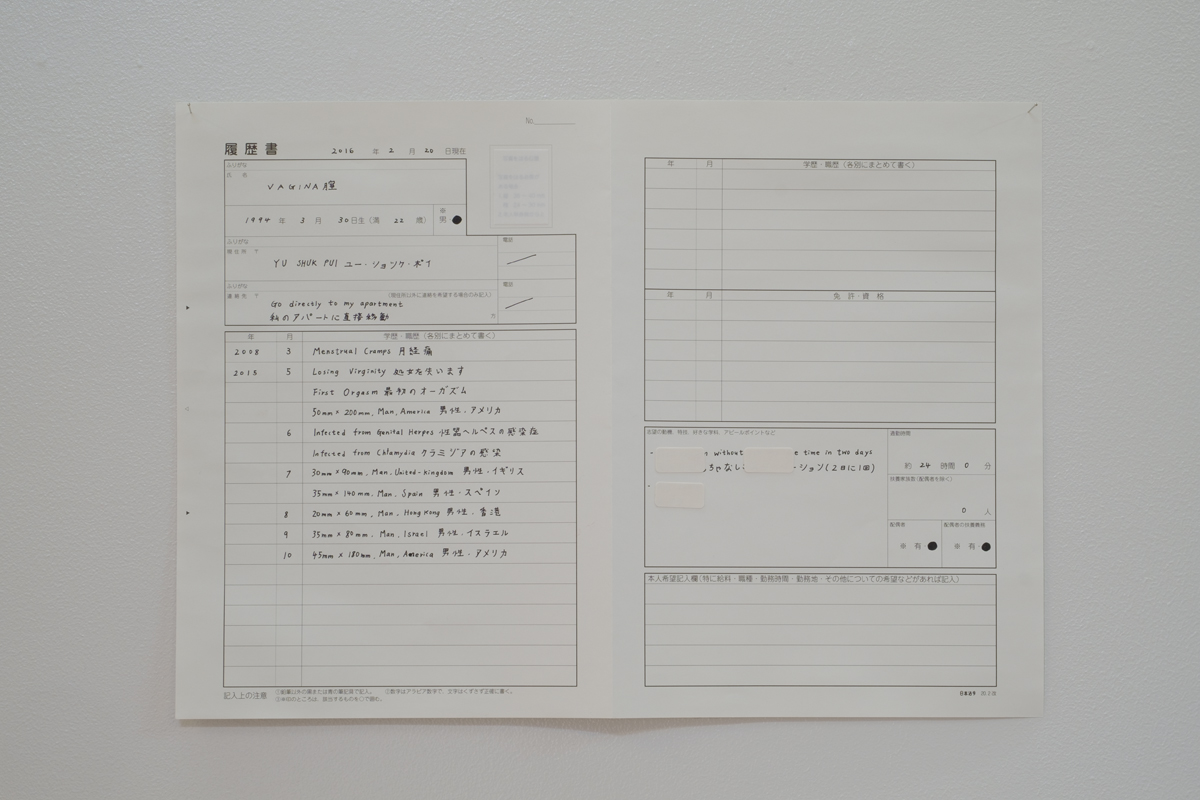 No.
履歴書 2016 年 2 月 20 日現在
ふりがな
氏 名
VAGINA 膣
1994 年 3 月 30 日生 (満 22 歳) ※ 男 ●
ふりがな 電話
現住所 〒
YU SHUK PUI ユー・ションク・ポイ
ふりがな 電話
連絡先 〒 (現住所以外に連絡を希望する場合のみ記入)
Go directly to my apartment
私のアパートに直接移動 方
年 月 学歴・職歴 (各別にまとめて書く)
2008 3 Menstrual Cramps 月経痛
2015 5 Losing Virginity 処女を失います
First Orgasm 最初のオーガズム
50mm × 200mm, Man, America 男性・アメリカ
6 Infected from Genital Herpes 性器ヘルペスの感染症
Infected from Chlamydia クラミジアの感染
7 30mm × 90mm, Man, United-Kingdom 男性・イギリス
35mm × 140mm, Man, Spain 男性・スペイン
8 20mm × 60mm, Man, Hong Kong 男性・香港
9 35mm × 80mm, Man, Israel 男性・イスラエル
10 45mm × 180mm, Man, America 男性・アメリカ
記入上の注意 ①鉛筆以外の黒または青の筆記具で記入。 ②数字はアラビア数字で、文字はくずさず正確に書く。
③※印のところは、該当するものを○で囲む。
年 月 学歴・職歴 (各別にまとめて書く)
年 月 免許・資格
志望の動機、特技、好きな学科、アピールポイントなど
without e time in two days
ちゃなし ーション(2日に1回)
通勤時間
約 24 時間 0 分
扶養家族数(配偶者を除く)
0 人
配偶者 配偶者の扶養義務
※ 有 ● ※ 有 ●
本人希望記入欄(特に給料・職種・勤務時間・勤務地・その他についての希望などがあれば記入)